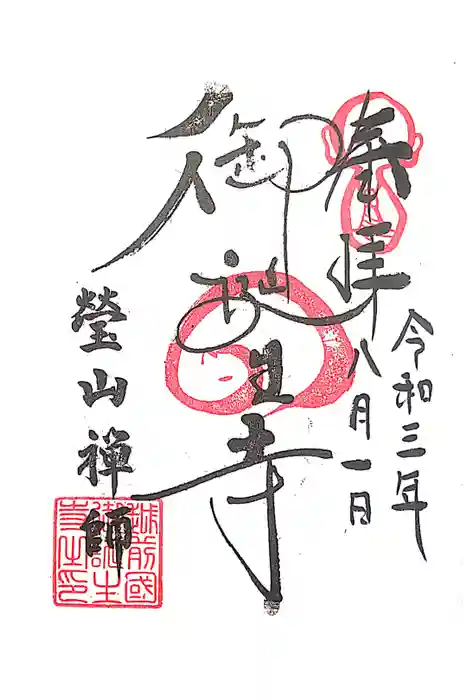 奉拝
令和三年
八月一日
御誕生寺
瑩山禪師
越前國
御誕生
寺之印